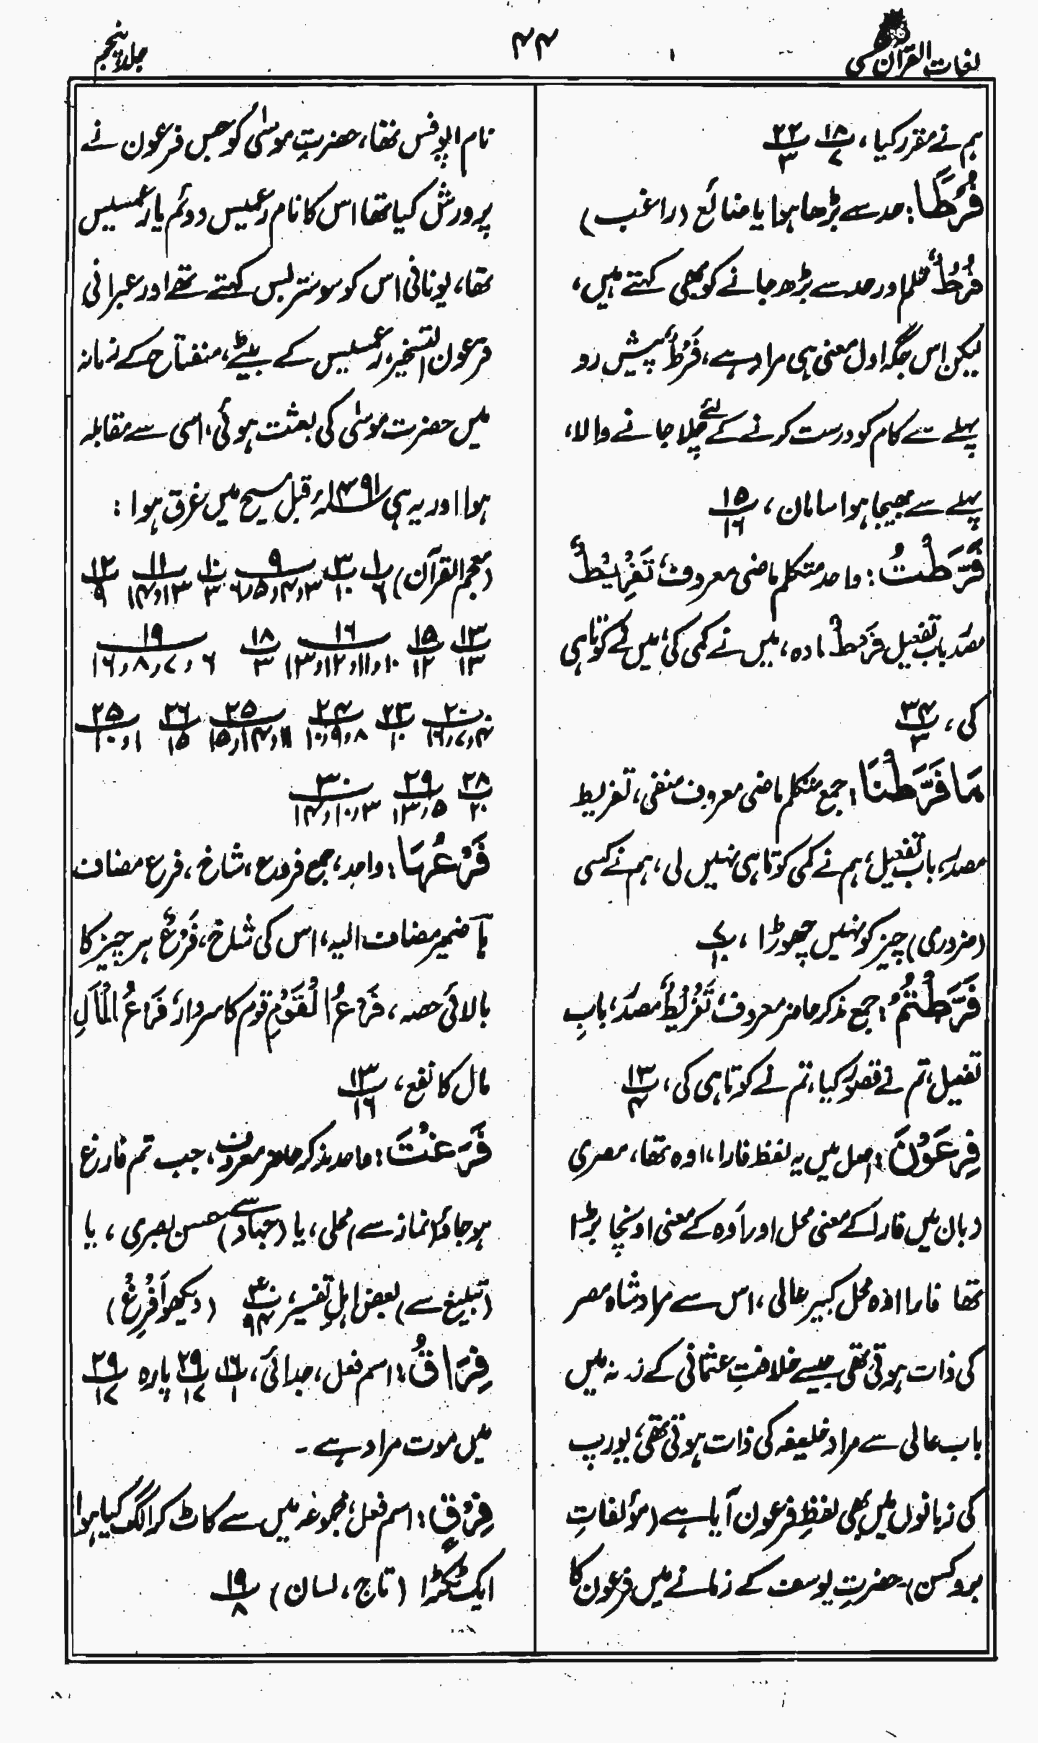 لغات القرآن
۴۴
جلد پنجم
ہم نے مقرر کیا، ۱۸/۷ ۲۲/۳
فُرُطًا: حد سے بڑھا ہوا یا ضائع (راغب)
فُرُطٌ ظلم اور حد سے بڑھ جانے کو بھی کہتے ہیں،
لیکن اس جگہ اول معنی ہی مراد ہے، فَرَطٌ پیش رو
پہلے سے کام کو درست کرنے کے لئے چلا جانے والا،
پہلے سے بھیجا ہوا سامان، ۱۵/۱۶
فَرَّطْتُ: واحد متکلم ماضی معروف، تَفْرِیْطٌ
مصدر باب تفعیل فرطٌ مادہ، میں نے کمی کی، میں نے کوتاہی
کی، ۲۴/۳
مَا فَرَّطْنَا: جمع متکلم ماضی معروف منفی، تفریط
مصدر، باب تفعیل، ہم نے کمی کوتاہی نہیں لی، ہم نے کسی
(ضروری) چیز کو نہیں چھوڑا، ۷/۱۰
فَرَّطْتُمْ: جمع مذکر حاضر معروف، تَفْرِیْطٌ مصدر، بابِ
تفعیل، تم نے قصور کیا، تم نے کوتاہی کی، ۱۳/۴
فِرْعَوْنَ: اصل میں یہ لفظ فارا، اوہ تھا، مصری
زبان میں فارا کے معنی محل اور اوہ کے معنی اونچا بڑا
تھا فارا اوہ محل کبیر عالی، اس سے مراد شاہ مصر
کی ذات ہوتی تھی جیسے خلافتِ عثمانی کے زمانہ میں
باب عالی سے مراد خلیفہ کی ذات ہوتی تھی، یورپ
کی زبانوں میں بھی لفظِ فرعون آیا ہے (مؤلفاتِ
بروکسن) حضرتِ یوسف کے زمانے میں فرعون کا
نام ابوفس تھا، حضرتِ موسٰی کو جس فرعون نے
پرورش کیا تھا اس کا نام رعمیس دوئم یا رعمسیس
تھا، یونانی اس کو سوسترلبس کہتے تھے اور عبرانی
فرعون التسخیر، رعمسیس کے بیٹے، منفتاح کے زمانہ
میں حضرت موسٰی کی بعثت ہوئی، اسی سے مقابلہ
ہوا اور یہ ہی ۱۴۹۱ء قبل مسیح میں غرق ہوا:
(معجم القرآن) ۱/۶ ۳/۱۰ ۹/۳،۴،۵،۶ ۱۰/۳ ۱۱/۱۳،۱۴ ۱۲/۹
۱۳/۱۳ ۱۵/۱۲ ۱۶/۱۰،۱۱،۱۲،۱۳ ۱۸/۳ ۱۹/۶،۷،۸،۱۶
۲۰/۴،۷،۱۶ ۲۳/۱۰ ۲۴/۸،۹،۱۰ ۲۵/۱۱،۱۴،۱۵ ۲۶/۱۵ ۲۵/۱،۱۰
۲۸/۲۰ ۲۹/۵،۱۳ ۳۰/۳،۱۰،۱۴
فَرْعُہَا: واحد، جمع فروع، شاخ، فرع مضاف
ہا ضمیر مضاف الیہ، اس کی شاخ، فَرْعٌ ہر چیز کا
بالائی حصہ، فَرْعُ الْقَوْمِ قوم کا سردار، فَرَاعُ الْمَالِ
مال کا نفع، ۱۳/۱۶
فَرَغْتَ: واحد مذکر حاضر معروف، جب تم فارغ
ہو جاؤ (نماز سے) محلی، یا (جہاد سے) حسن بصری، یا
(تبلیغ سے) بعض اہلِ تفسیر، ۳۰/۹۴ (دیکھو اَفْرِغْ)
فِرَاقُ: اسم فعل، جدائی، ۱۶/۱ ۲۹/۱۷ پارہ ۲۹/۱۷
میں موت مراد ہے۔
فِرْقٍ: اسم فعل، مجموعہ میں سے کاٹ کر الگ کیا ہوا
ایک ٹکڑا (تاج، لسان) ۱۹/۸